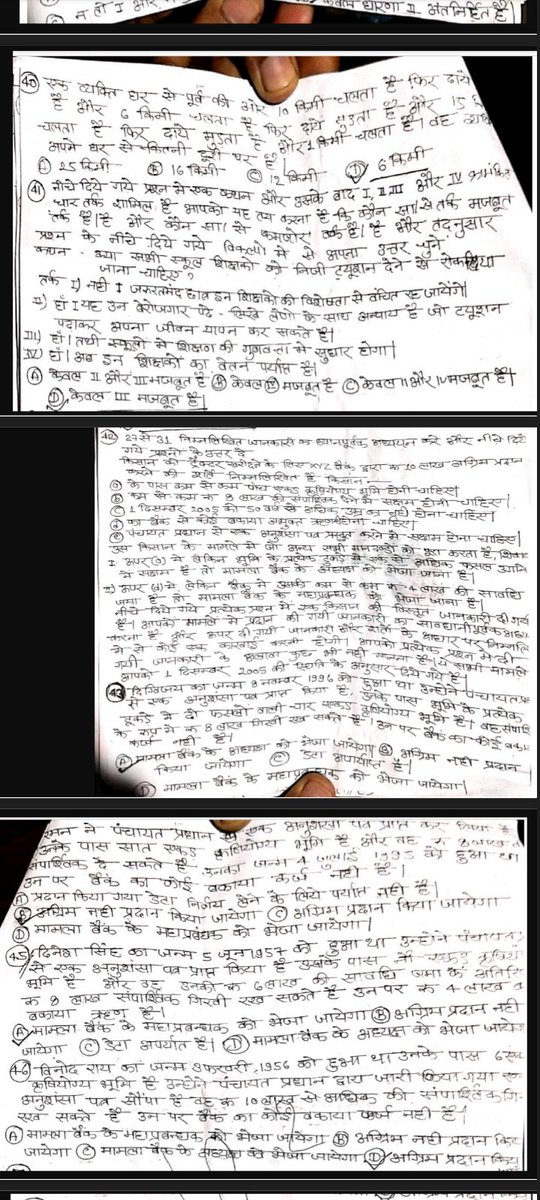 न तो I और न
केवल धारणा II अंतर्निहित है।
40 एक व्यक्ति घर से पूर्व की ओर 10 किमी चलता है फिर दायें
है और 6 किमी चलता है फिर दायें मुड़ता है और 15
चलता है फिर दायें मुड़ता है और किमी चलता है। वह
अपने घर से कितनी दूरी पर है।
A 25 किमी B 16 किमी C 12 किमी D 6 किमी
41 नीचे दिये गये प्रश्न में एक कथन और उसके बाद I, II, III और IV क्रमांकित
चार तर्क शामिल है आपको यह तय करना है कि कौन सा/से तर्क मजबूत
तर्क है/है और कौन सा/से कमजोर तर्क है/है और तदनुसार
प्रश्न के नीचे दिये गये विकल्पों में से अपना उत्तर चुने
कथन - क्या सभी स्कूल शिक्षकों को निजी ट्यूशन देने से रोक दिया
जाना चाहिए?
तर्क I) नहीं। जरूरतमंद छात्र इन शिक्षकों की विशेषता से वंचित रह जायेंगे।
II) हाँ। यह उन बेरोजगार पढ़े-लिखे लोगों के साथ अन्याय है जो ट्यूशन
पढ़ाकर अपना जीवन यापन कर सकते है।
III) हाँ। तभी स्कूलों में शिक्षण की गुणवत्ता में सुधार होगा।
IV) हाँ। अब इन शिक्षकों का वेतन पर्याप्त है।
A केवल II और III मजबूत है B केवल मजबूत है C केवल II और IV मजबूत है।
D केवल III मजबूत है।
42. 27 से 31 निम्नलिखित जानकारी का ध्यानपूर्वक अध्ययन करें और नीचे दिये
गये प्रश्नों के उत्तर दें
किसान को ट्रैक्टर खरीदने के लिए XYZ बैंक द्वारा रु 10 लाख अग्रिम प्रदान
करने की शर्तें निम्नलिखित हैं किसान-
a के पास कम से कम पांच एकड़ कृषियोग्य भूमि होनी चाहिए।
b कम से कम रु 8 लाख की संपार्श्विक देने में सक्षम होना चाहिए।
c 1 दिसम्बर 2005 को 50 वर्ष से अधिक उम्र का नहीं होना चाहिए।
d का बैंक से कोई बकाया ऋण नहीं होना चाहिए।
e पंचायत प्रधान से एक अनुशंसा पत्र प्रस्तुत करने में सक्षम होना चाहिए।
उस किसान के मामले में जो अन्य सभी मानदंडों को पूरा करता है, सिवाय
I. ऊपर (a) में लेकिन भूमि के प्रत्येक टुकड़े में एक से अधिक फसल उगाने
में सक्षम है तो मामला बैंक के अध्यक्ष को भेजा जाना है।
II ऊपर (d) में लेकिन बैंक में उसकी कम से कम रु 4 लाख की सावधि
जमा है तो मामला बैंक के महाप्रबंधक को भेजा जाना है।
नीचे दिये गये प्रत्येक प्रश्न में एक किसान की विस्तृत जानकारी दी गयी
है। आपको मामले में प्रदान की गयी जानकारी का सावधानीपूर्वक अध्ययन
करना है और ऊपर दी गयी जानकारी और शर्तों के आधार पर निम्नलि
में से कोई एक कारवाई करनी होगी। आपको प्रत्येक प्रश्न में दी
गयी जानकारी के अलावा कुछ भी नहीं मानना है। ये सभी मामले
आपको 1 दिसम्बर 2005 की स्थिति के अनुसार दिये गये है।
43 दिग्विजय का जन्म 8 नवम्बर 1996 को हुआ था उन्होंने पंचायत प्र
से एक अनुशंसा पत्र प्राप्त किया है। उनके पास भूमि के प्रत्येक
टुकड़े में दो फसलों वाली चार एकड़ कृषियोग्य भूमि है। वह संपार्श्वि
के रूप में रु 8 लाख गिरवी रख सकते है। उन पर बैंक का कोई बकाया
कर्ज नहीं है।
A मामला बैंक के अध्यक्ष को भेजा जायेगा B अग्रिम नहीं प्रदान
किया जायेगा C डेटा अपर्याप्त है।
D मामला बैंक के महाप्रबंधक को भेजा जायेगा।
रमन ने पंचायत प्रधान से एक अनुशंसा पत्र प्राप्त कर लिया है
उनके पास सात एकड़ कृषियोग्य भूमि है और वह रु 8 लाख
संपार्श्विक दे सकते है. उनका जन्म 4 जुलाई 1995 को हुआ था
उन पर बैंक का कोई बकाया कर्ज नहीं है।
A प्रदान किया गया डेटा निर्णय लेने के लिये पर्याप्त नहीं है।
B अग्रिम नहीं प्रदान किया जायेगा C अग्रिम प्रदान किया जायेगा
D मामला बैंक के महाप्रबंधक को भेजा जायेगा।
45 दिनेश सिंह का जन्म 5 जून 1957 को हुआ था उन्होंने पंचायत
से एक अनुशंसा पत्र प्राप्त किया है उसके पास नौ एकड़ कृषियो
भूमि है और वह उनकी रु 6 लाख की सावधि जमा के अतिरि
रु 8 लाख संपार्श्विक गिरवी रख सकते है. उन पर रु 4 लाख
बकाया ऋण है।
A मामला बैंक के महाप्रबन्धक को भेजा जायेगा B अग्रिम प्रदान नहीं
जायेगा C डेटा अपर्याप्त है। D मामला बैंक के अध्यक्ष को भेजा जायेगा
46 विनोद राय का जन्म 8 फरवरी, 1956 को हुआ था उनके पास 6 एकड़
कृषियोग्य भूमि है उन्होंने पंचायत प्रधान द्वारा जारी किया गया एक
अनुशंसा पत्र सौंपा है वह रु 10 लाख से अधिक की संपार्श्विक गिर
रख सकते है उन पर बैंक का कोई बकाया कर्ज नहीं है।
A मामला बैंक के महाप्रबंधक को भेजा जायेगा B अग्रिम नहीं प्रदान किया
जायेगा C मामला बैंक के अध्यक्ष को भेजा जायेगा D अग्रिम प्रदान किया